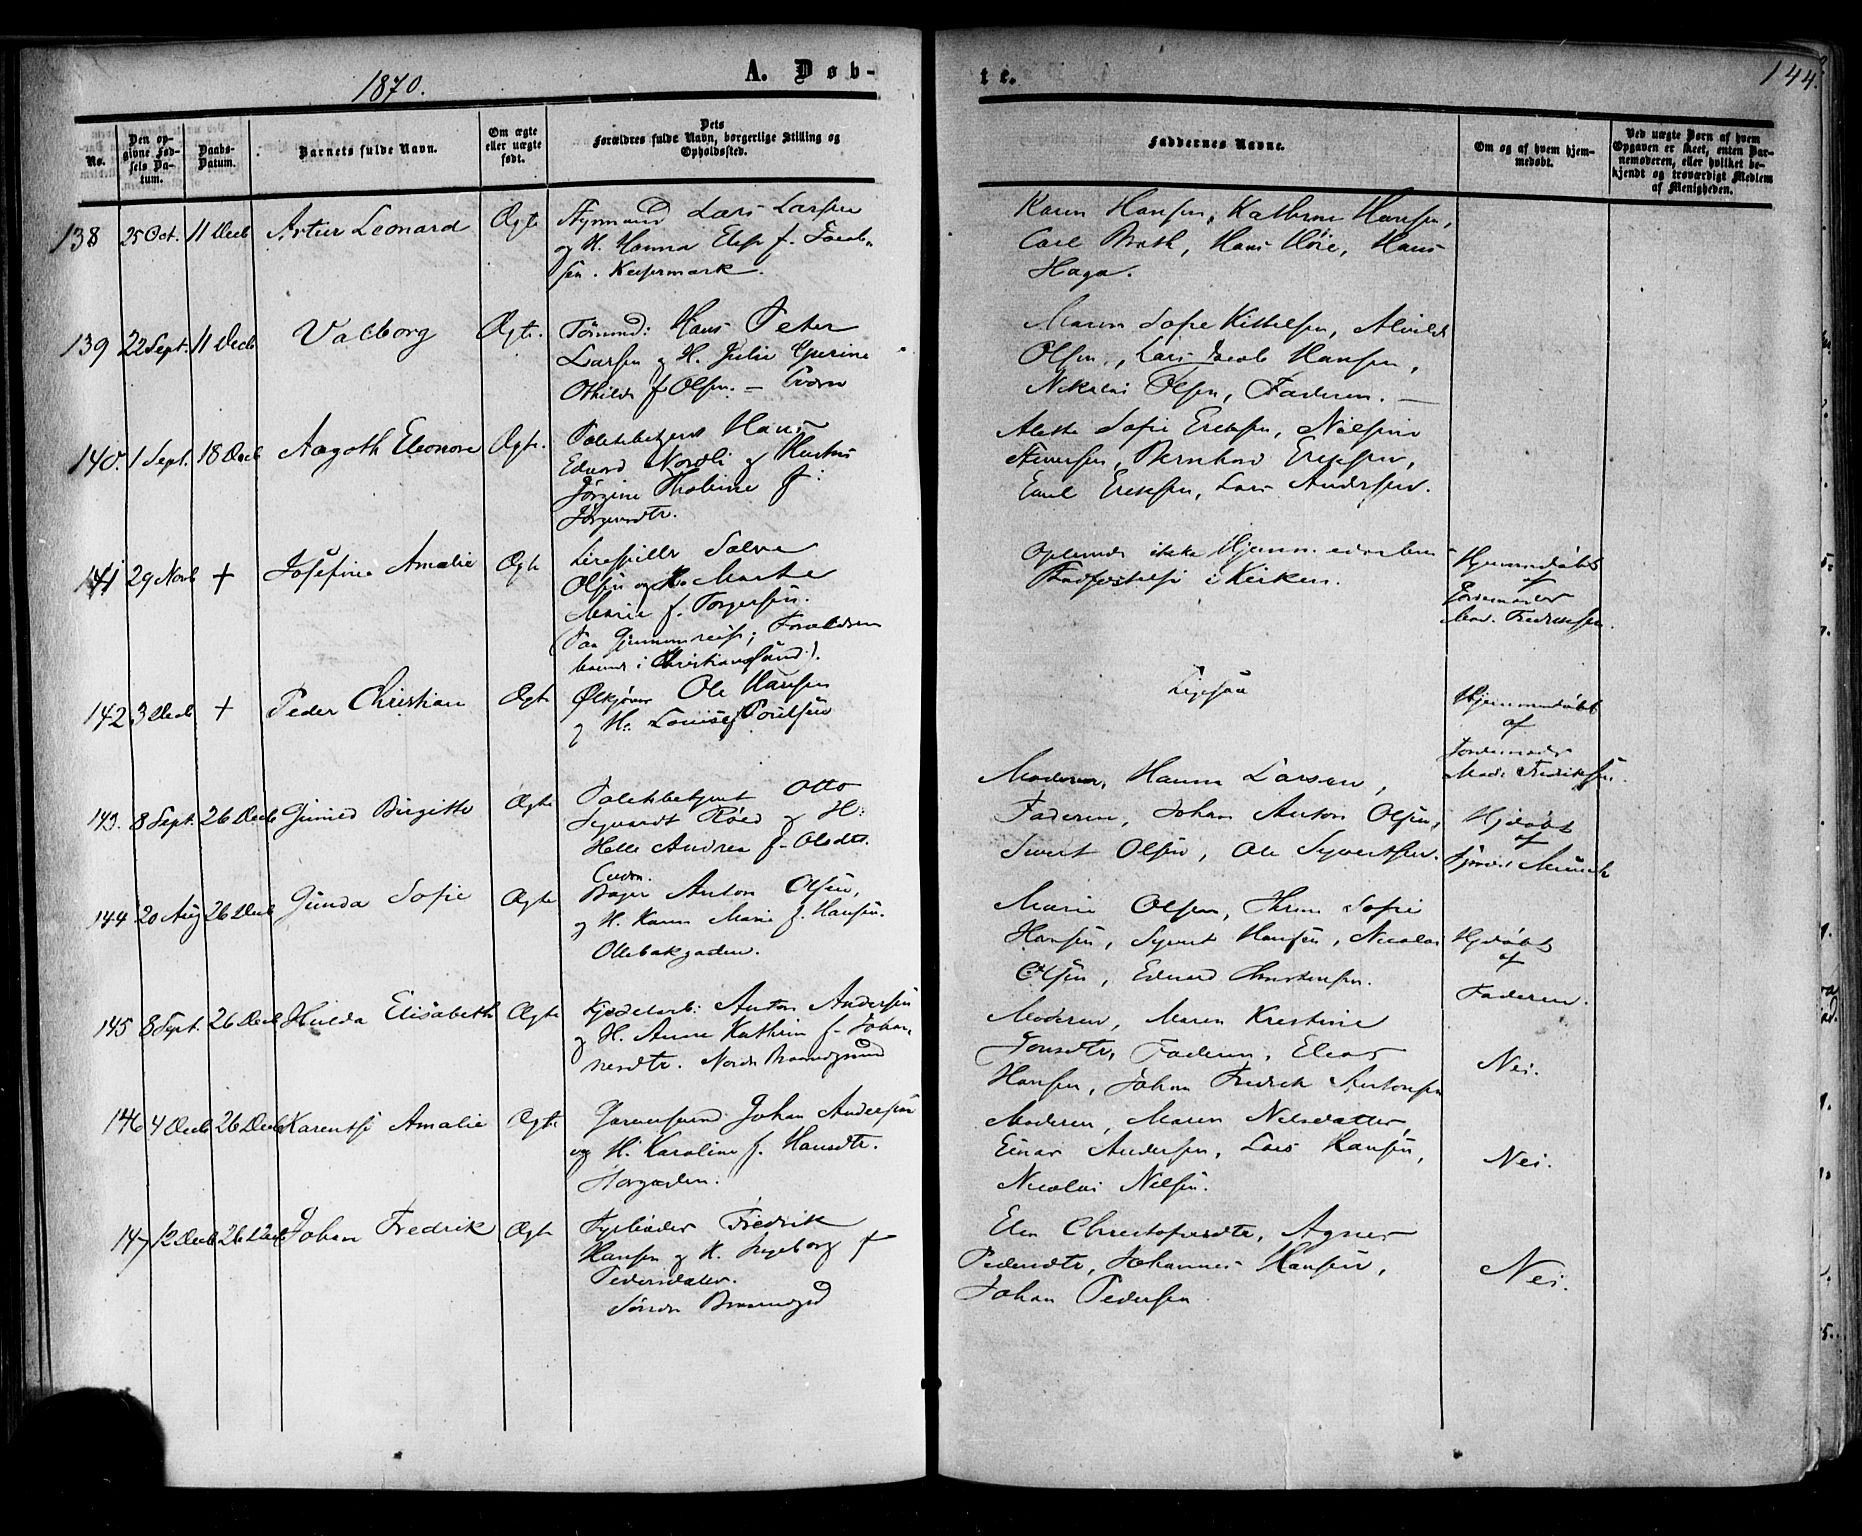 1870.
A. Døb-
te.
144.
No.
Den op-
givne Fød-
sels Da-
tum.
Daabs-
Datum.
Barnets fulde Navn.
Om ægte
eller uægte
født.
Dets
Forældres fulde Navn, borgerlige Stilling og
Opholdssted.
Faddernes Navne.
Om og af hvem hjem-
medøbt.
Ved uægte Børn af hvem
Opgaven er skeet, enten Bar-
nemoderen, eller hvilket be-
kjendt og troværdigt Medlem
af Menigheden.
138 25 Oct. 11 Decb Artur Leonard Ægte
Styrmand Lars Larsen
og H. Hanna Elise f. Jacob-
sen.
Karen Hansen, Kathrine Hansen,
Carl Hans Høie, Hans
Haga.
139 22 Sept. 11 Decb Valborg Ægte.
Tømmd: Hans Peter
Larsen og H. Julie
Othilde f Olsen. –
Maren Sofie Kittelsen, Alvilde
Olsen, Lars Jacob Hansen,
Nikolai Olsen, Faderen. –
140. 1 Sept. 18 Decb Aagoth Eleonore Ægte.
Politibetjent Hans
Edvard Nordli og Hustru
Jørgine Thobine f:
Jørgensdtr.
Sofie Ericksen, Nilsine
Bernhard Ericksen,
Emil Ericksen, Lars Andersen.
141 29 Novb + Josefine Amalie Ægte
Lirespiller Salve
Olsen og H. Marthe
Marie f. Torgersen.
(Paa Gjennemreise; Forældrene
boende i Christiansund).
Oplevede ikke Hjemmedaabens
Stadfæstelse i Kirken.
Hjemmedøbt
af
Jordemoder
Mad. Fredriksen.
142 3 Decb + Peder Christian Ægte
Ølkjører Ole Hansen
og H: Louise f Poulsen
Ligesaa
Hjemmedøbt
af
Jordemoder
Mad. Fredriksen.
143. 8 Sept. 26 Decb Birgitte Ægte
Politibetjent Otto
Røed og H:
Helle Andrea f. Olsdtr.
Moderen, Hanna Larsen,
Faderen, Johan Anton Olsen,
Sivert Olsen, Ole Syvertsen.
Hjdøbt
af
Munch
144 20 Aug 26 Decb Gunda Sofie Ægte
Bager Anton Olsen,
og H. Karen Marie f. Hansen.
Ollebakgaden.
Marie Olsen, Sofie
Hansen, Syvert Hansen, Nicolai
Olsen, Edvard Christensen.
Hjdøbt
af
Faderen.
145 8 Sept. 26 Decb Hulda Elisabeth Ægte
Anton Andersen
og H. Anne Kathrine f. Johan-
nesdtr. Nordre Brandgrund
Moderen, Maren Kristine
Jonsdtr, Faderen, Elias
Hansen, Johan Fredrik Antonsen
Nei.
146 4 Decb 26 Decb Karentse Amalie Ægte
Johan Andersen
og H. Karoline f. Hansdtr.
Storgaden.
Moderen, Maren Nilsdatter,
Einar Andersen, Lars Hansen,
Nicolai Nilsen.
Nei.
147 12 Decb 26 Decb Johan Fredrik Ægte
Fyrbøder Fredrik
Hansen og H. Ingeborg f
Pedersdatter.
Søndre Brandgrd
Elen Christofersdtr, Agnes
Pedersdtr, Johannes Hansen,
Johan Pedersen
Nei.